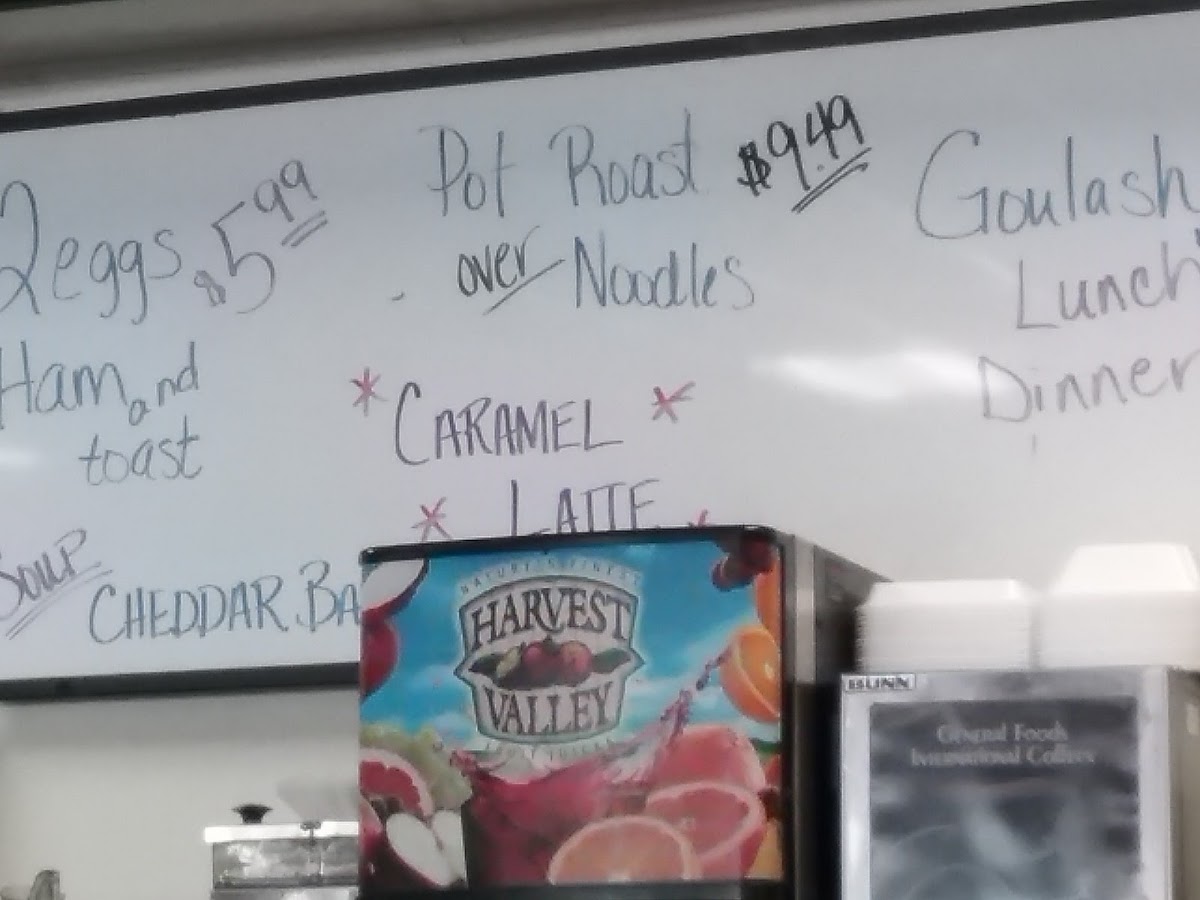 2 eggs $5.99
Ham and
toast
Soup
CHEDDAR BA
Pot Roast $9.49
over Noodles
* CARAMEL *
* LATTE *
Goulash
Lunch
Dinner
NATURE'S FINEST
HARVEST
VALLEY
FRUIT JUICES
BUNN
General Foods
International Coffees